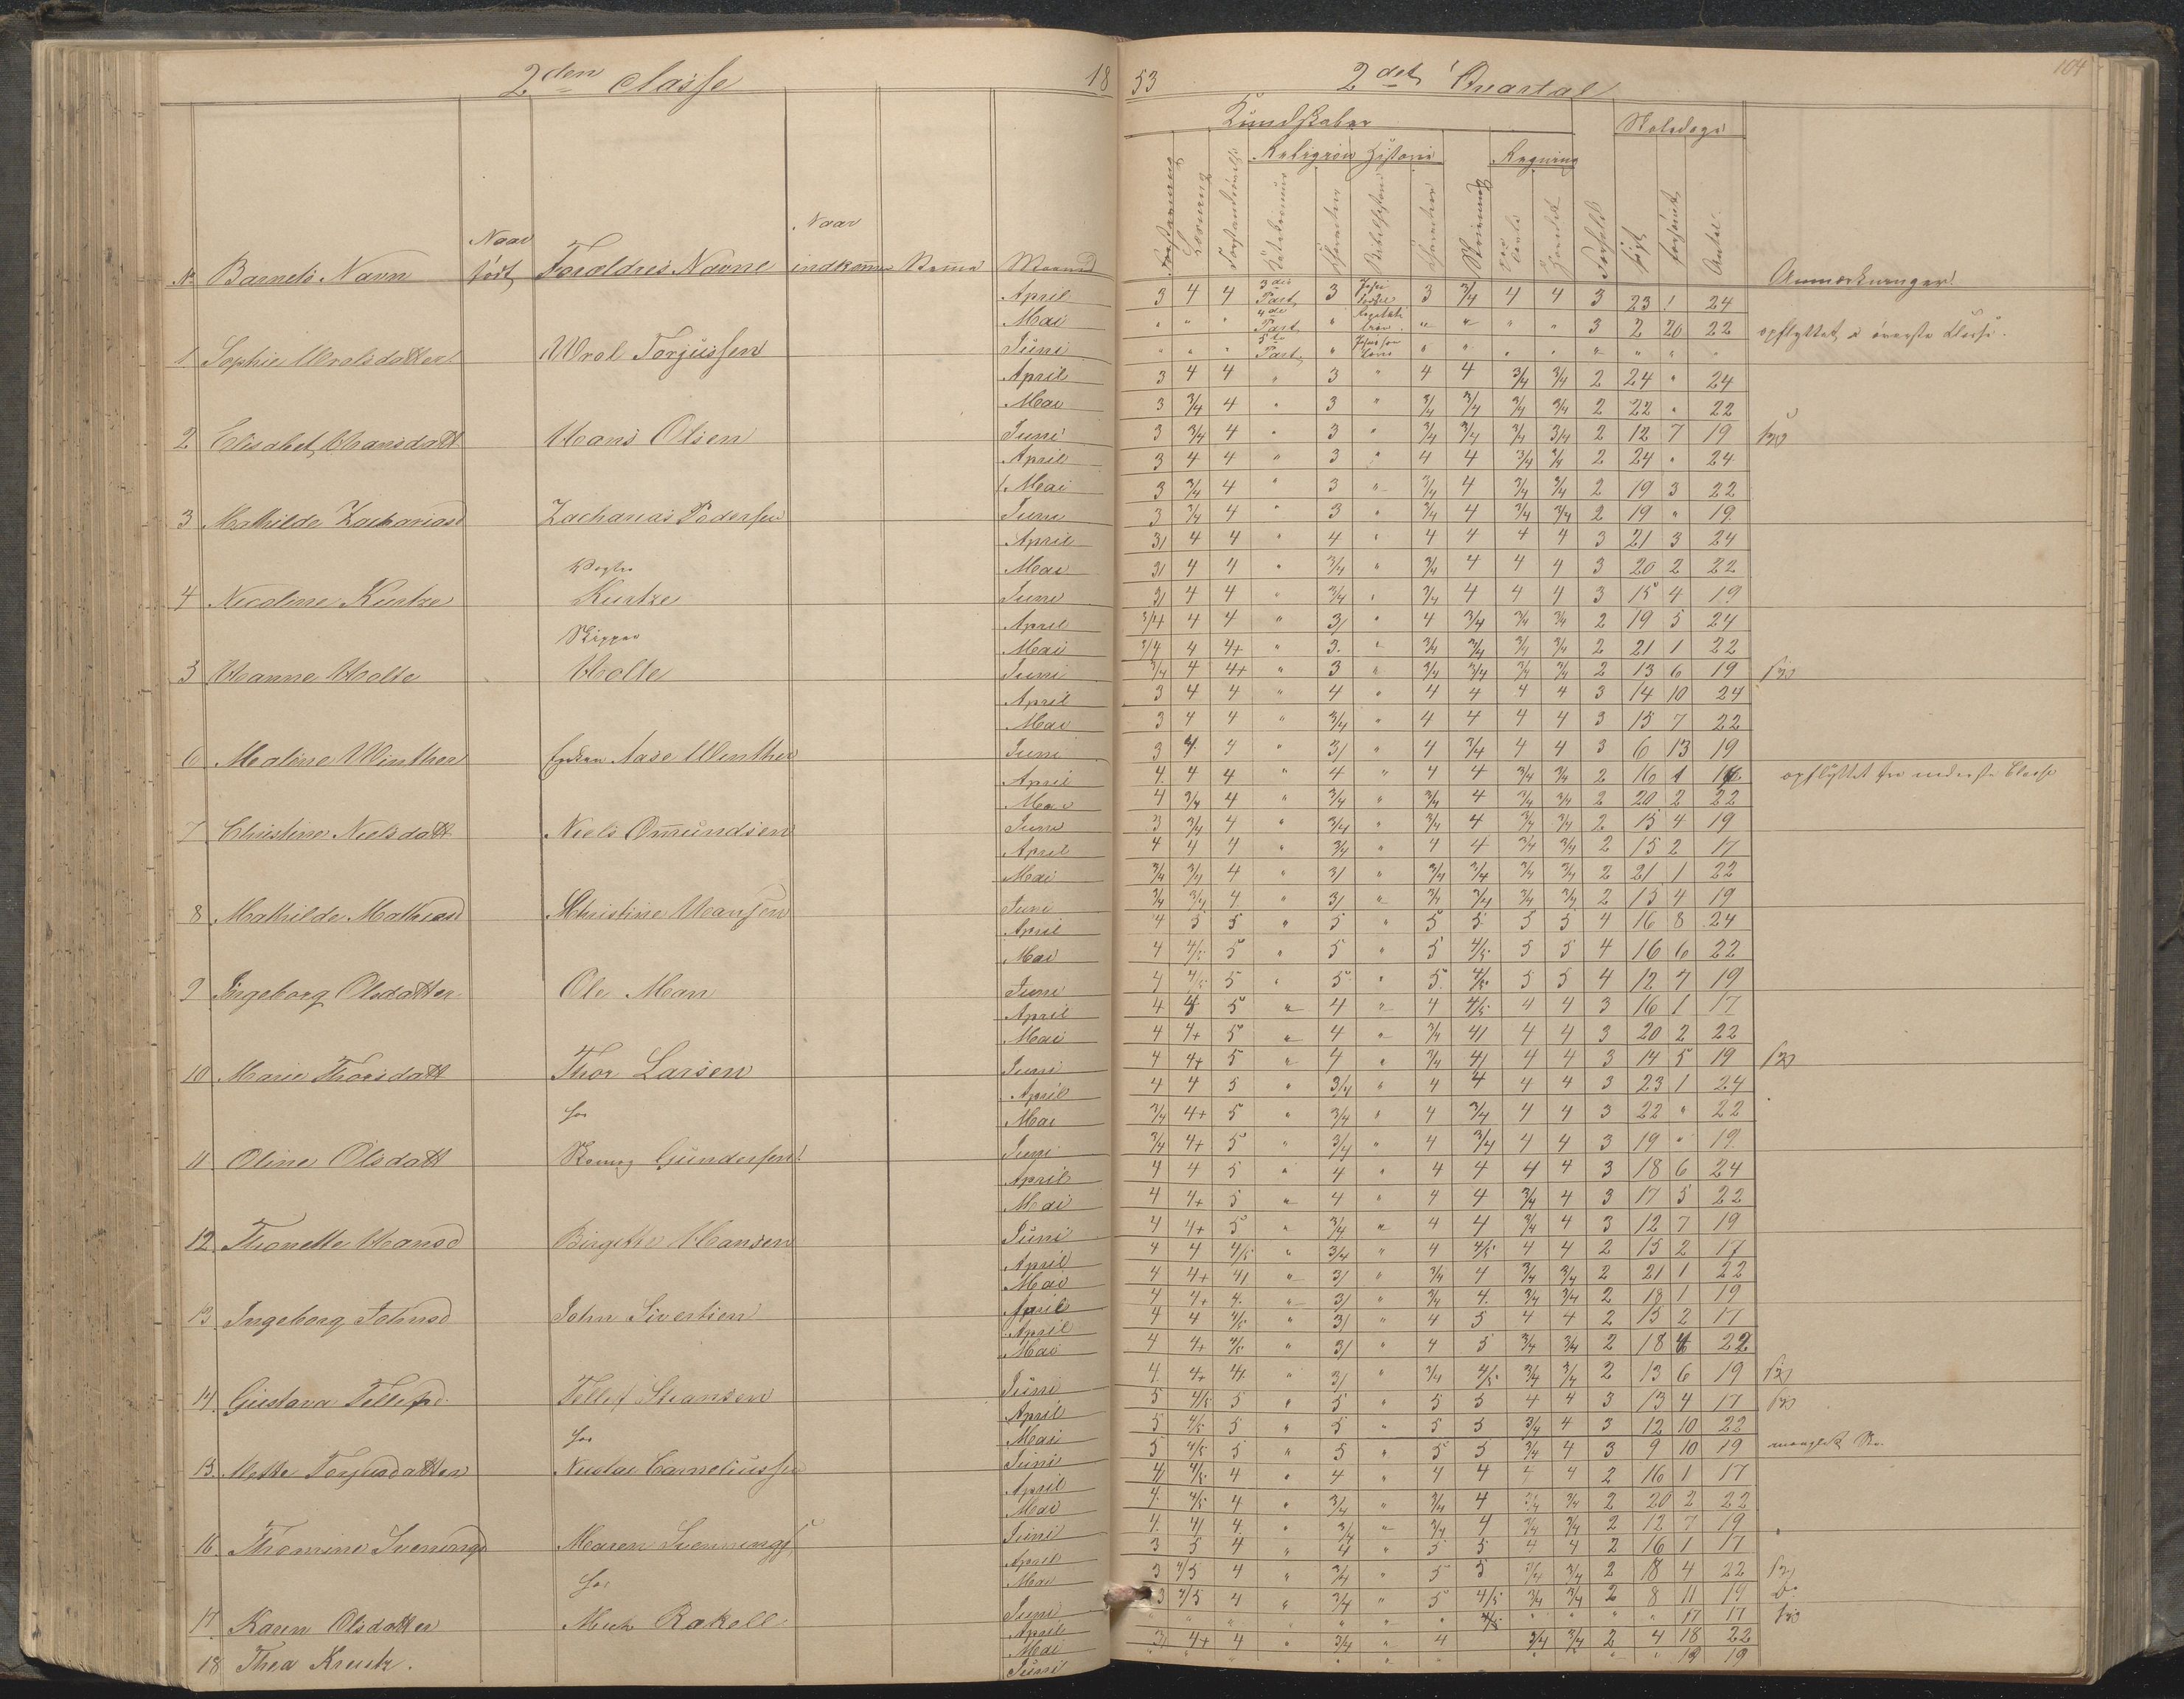 2den Classe 18
No Barnets Navn Naar født Forældres Navne Naar indkomm Maaned
April
Mai
1. Sophie Wrolsdatter Wrol Torjussen Juni
April
Mai
2 Elisabet Hansdatt Hans Olsen Juni
April
Mai
3 Mathilde Zachariasd Zacharias Pedersen Juni
April
Mai
4 Nicoline Kurtze Kurtze Juni
April
Skipper Mai
5 Hanne Holte Holte Juni
April
Mai
6 Maline Winther Enken Aase Winther Juni
April
Mai
7 Christine Nielsdatt Niels Omundsen Juni
April
Mai
8 Mathilde Mathiasd Christine Hansen Juni
April
Mai
9 Ingeborg Olsdatter Ole Man Juni
April
Mai
10 Marie Thorsdatt Thor Larsen Juni
April
hos Mai
11 Oline Olsdatt Gundersen Juni
April
Mai
12. Thonette Hansd Birgithe Hansen Juni
April
Mai
13. Ingeborg Johnsd John Sivertsen April
April
Mai
14. Gustava Tellefsd. Tellef Juni
April
hos Mai
15. Mette Torjusdatter Nicolai Corneliussen Juni
April
Mai
16. Thomine Svenningsd Maren Svennings Juni
April
hos Mai
17. Karen Olsdatter Mich Rakell Juni
April
Mai
18 Thea Kreutz. Juni
53 2det Quartal 104
Kundskaber Skoledage
Religion Historie Regning
Læsning Skrivning søgt forsømt Antal Anmærkninger
3 4 4 3die Part 3 3 3/4 4 4 3 23 1 24
" " " 4de Part " " " " " 3 2 20 22 opflyttet i øverste Classe.
" " " 5te Part " " " " " " " " "
3 4 4 " 3 " 4 4 3/4 3/4 2 24 " 24
3 3/4 4 " 3 " 3/4 3/4 3/4 3/4 2 22 " 22
3 3/4 4 " 3 " 3/4 3/4 3/4 3/4 2 12 7 19
3 4 4 " 3 " 4 4 3/4 3/4 2 24 " 24
3 3/4 4 " 3 " 3/4 4 3/4 3/4 2 19 3 22
3 3/4 4 " 3 " 3/4 4 3/4 3/4 2 19 " 19
3/ 4 4 " 4 " 4 4 4 4 3 21 3 24
3/ 4 4 " 3/4 " 3/4 4 4 4 3 20 2 22
3/ 4 4 " 3/4 " 3/4 4 4 4 3 15 4 19
3/4 4 4 " 3/ " 4 3/4 3/4 3/4 2 19 5 24
3/4 4 4+ " 3. " 3/4 3/4 3/4 3/4 2 21 1 22
3/4 4 4+ " 3 " 3/4 3/4 3/4 3/4 2 13 6 19
3 4 4 " 4 " 4 4 4 4 3 14 10 24
3 4 4 " 3/4 " 4 4 4 4 3 15 7 22
3 4 4 " 3/ " 4 3/4 4 4 3 6 13 19
4. 4 4 " 4 " 4 4 3/4 3/4 2 16 1 opflyttet fra nederste Classe
4 3/4 4 " 3/4 " 3/4 4 3/4 3/4 2 20 2 22
3 3/4 4 " 3/4 " 3/4 4 3/4 3/4 2 15 4 19
4 4 4 " 3/4 " 4 4 3/4 3/4 2 15 2 17
3/4 3/4 4 " 3/ " 3/4 3/4 3/4 3/4 2 21 1 22
3/4 3/4 4. " 3/ " 3/4 3/4 3/4 3/4 2 15 4 19
4 5 5 " 5 " 5 5 5 5 4 16 8 24
4 4/5 5 " 5 " 5 4/5 5 5 4 16 6 22
4 4/5 5 " 5 " 5 4/5 5 5 4 12 7 19
4 4 5 " 4 " 4 4/5 4 4 3 16 1 17
4 4+ 5 " 4 " 3/4 4/ 4 4 3 20 2 22
4 4+ 5 " 4 " 3/4 4/ 4 4 3 14 5 19
4 4 5 " 3/4 " 4 4 4 4 3 23 1 24
3/4 4+ 5 " 3/4 " 4 3/4 4 4 3 22 " 22
3/4 4+ 5 " 3/4 " 4 3/4 4 4 3 19 " 19
4 4 5 " 4 " 4 4 4 4 3 18 6 24
4 4+ 5 " 4 " 4 4 3/4 4 3 17 5 22
4 4+ 5 " 3/4 " 4 4 3/4 4 3 12 7 19
4 4 4/5 " 3/4 " 4 4/5 4 4 2 15 2 17
4 4+ 4/ " 3/ " 3/4 4 3/4 3/4 2 21 1 22
4 4+ 4. " 3/ " 3/4 4. 3/4 3/4 2 18 1 19
4 4 4/5 " 3/ " 4 5 4 4 2 15 2 17
4 4+ 4/5 " 3/ " 4 5 3/4 3/4 2 18 4 22
4. 4+ 4+ " 3/ " 3/4 4/5 3/4 3/4 2 13 6 19
5 4/5 5 " 5 " 5 5 4 4 3 13 4 17
5 4/5 5 " 5 " 5 5 3/4 4 3 12 10 22
5 4/5 5 " 5 " 5 5 3/4 4 3 9 10 19
4/ 4/5 4 " 4 " 4 4 4 4 2 16 1 17
4. 4/5 4 " 3/4 " 3/4 4 3/4 3/4 2 20 2 22
4. 4/ 4. " 3/4 " 3/4 4 3/4 3/4 2 12 7 19
3 5 4 " 4 " 5 5 4 4 2 16 1 17
3 4/5 4 " 3/4 " 5 5 3/4 3/4 2 18 4 22
3 4/5 4 " 3/4 " 5 4/5 3/4 3/4 2 8 11 19
" " " " " " " 4/5 " " " " 17 17
3/ 4+ 4 " 3/4 " 4 3/4 3/4 2 4 18 22
" " " " " " " " " " " 19 19